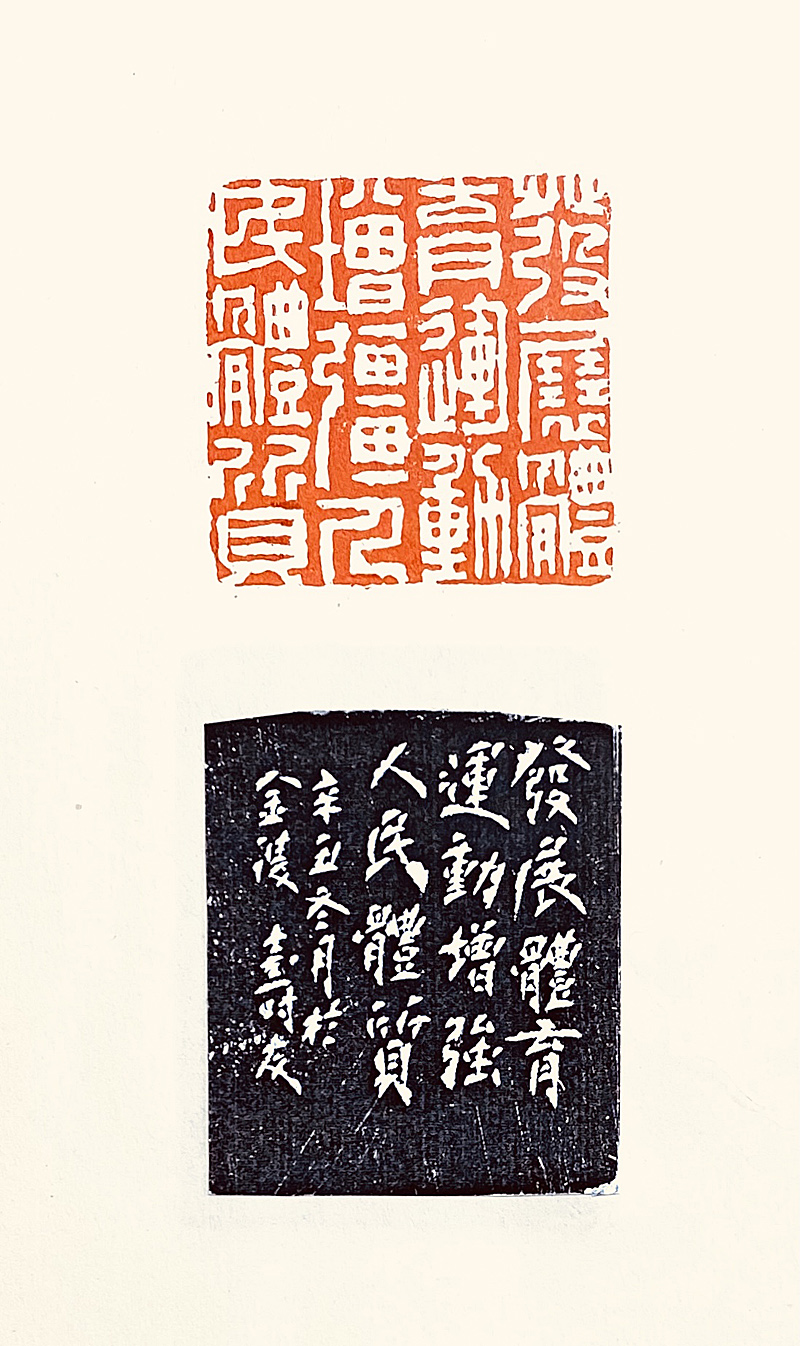 發展體
育運動
增彊人
民體質
發展體育
運動增強
人民體質
辛丑冬月於
金陵